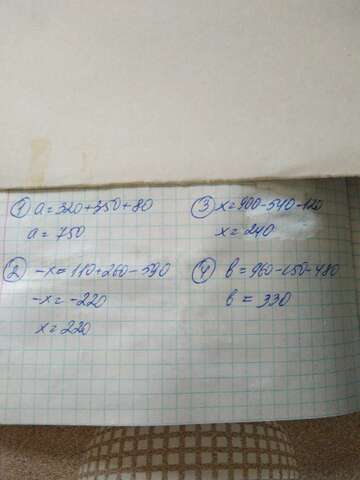 ① a=320+350+80
a=750
② -x=110+260-590
-x=-220
x=220
③ x=900-540-120
x=240
④ b=960-150-480
b=330